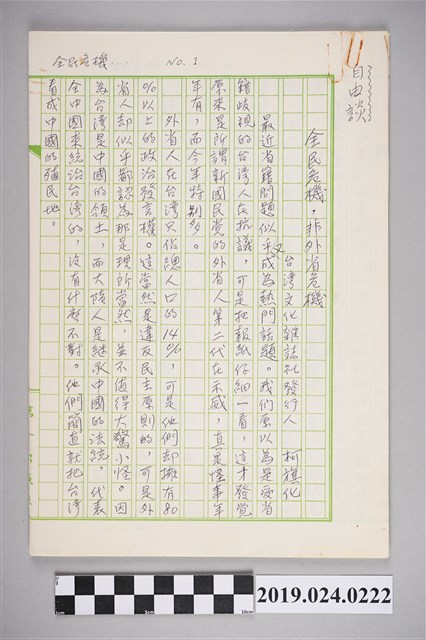 全民危機… NO. 1
自由談
全民危機，非外省危機
台灣文化雜誌社發行人 柯旗化
最近省籍問題似乎又成為熱門話題。我們原以為是受省
籍歧視的台灣人在抗議，可是把報紙仔細一看，這才發覺
原來是所謂新國民党的外省人第二代在示威，真是怪事年
年有，而今年特別多。
外省人在台灣只佔總人口的14%，可是他們却擁有80
%以上的政治發言權。這當然是違反民主原則的，可是外
省人却似乎都認為那是理所當然，並不值得大驚小怪。因
為台灣是中國的領土，而大陸人是繼承中國的法統，代表
全中國來統治台灣的，沒有什麼不對。他們簡直就把台灣
看成中國的殖民地。
2019.024.0222